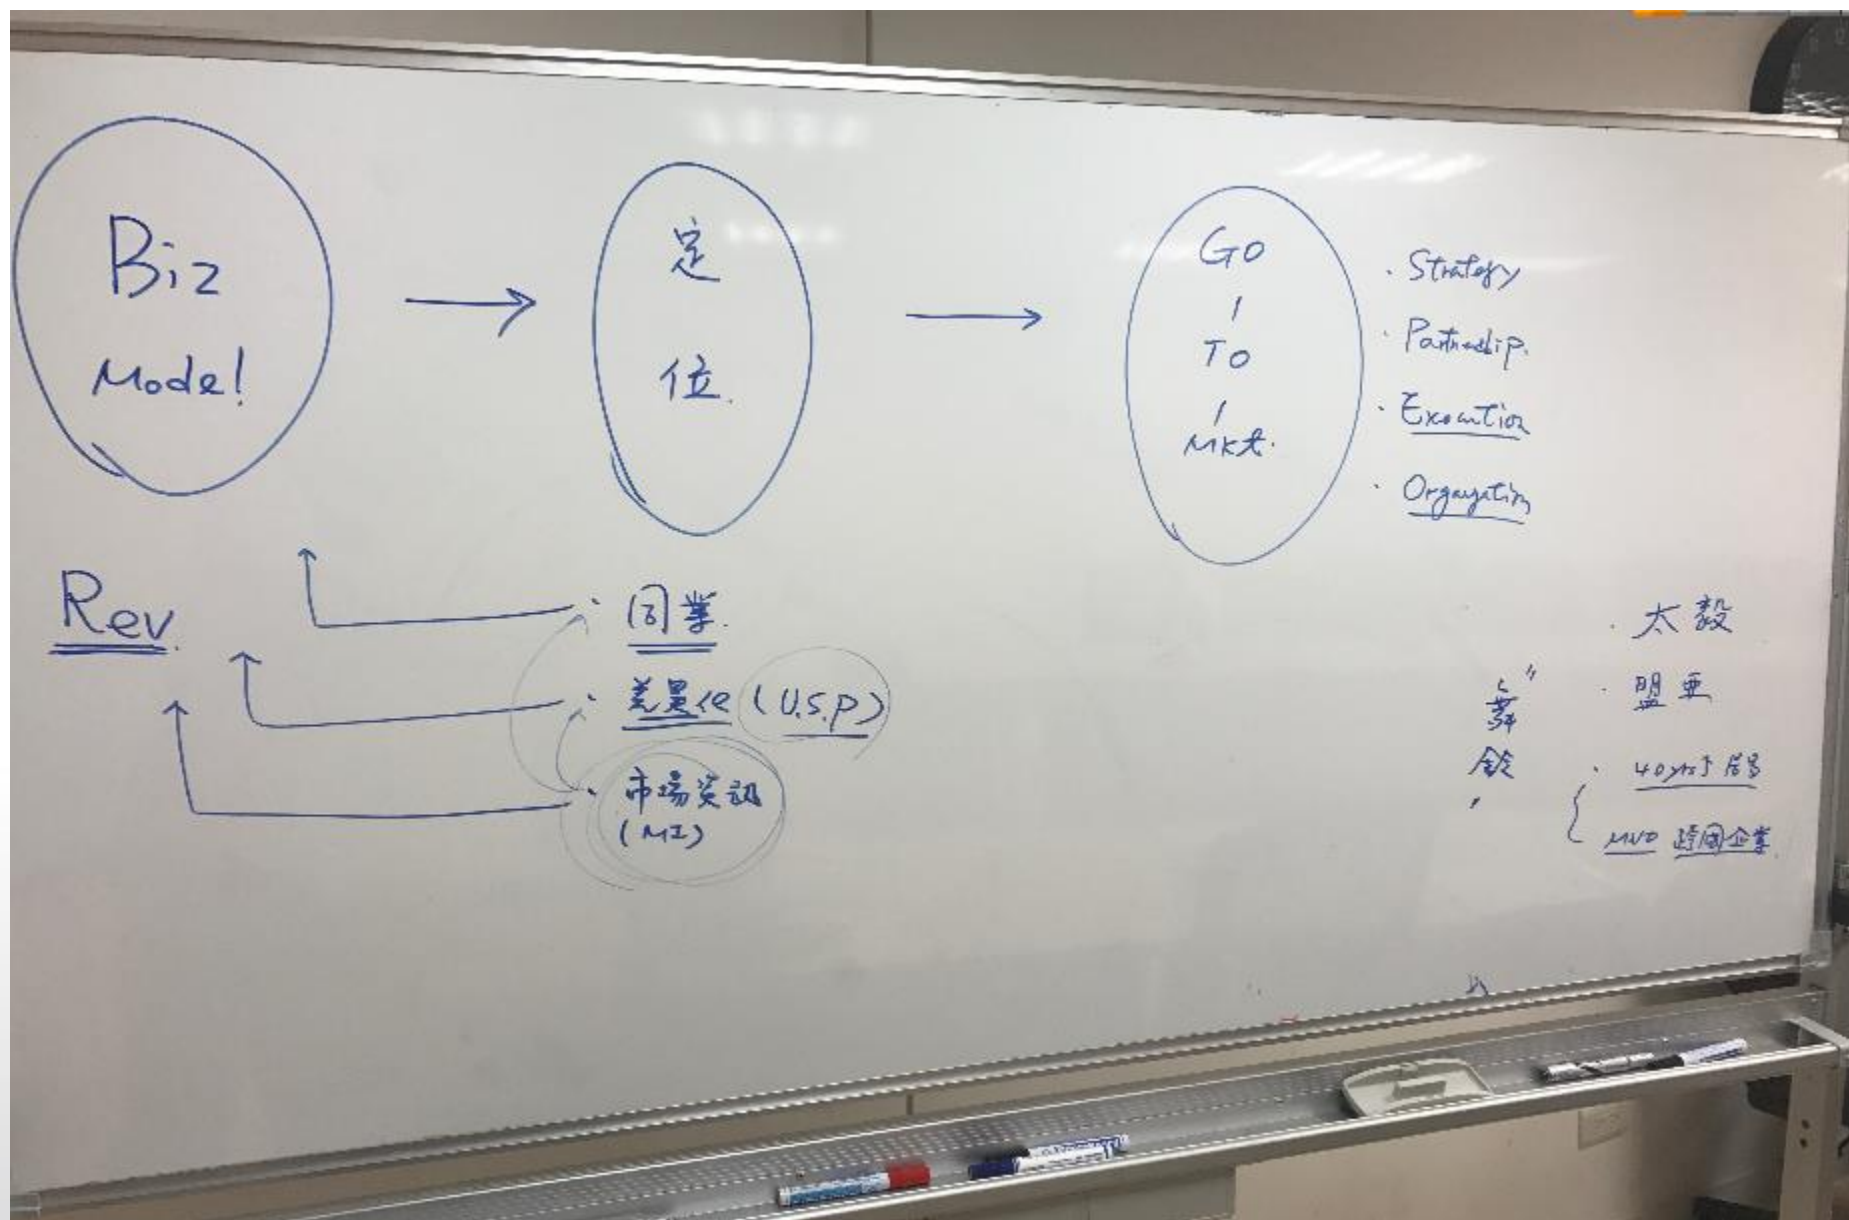 Biz
Model
定
位
GO
|
TO
|
MKt.
· Strategy
· Partnership.
· Execution
· Organization
Rev.
· 同業.
· 差異化 (U.S.P)
· 市場資訊
(MI)
· 太毅
· 盟亜
舞
鈴
· 40yrs↑
MNC 跨國企業.